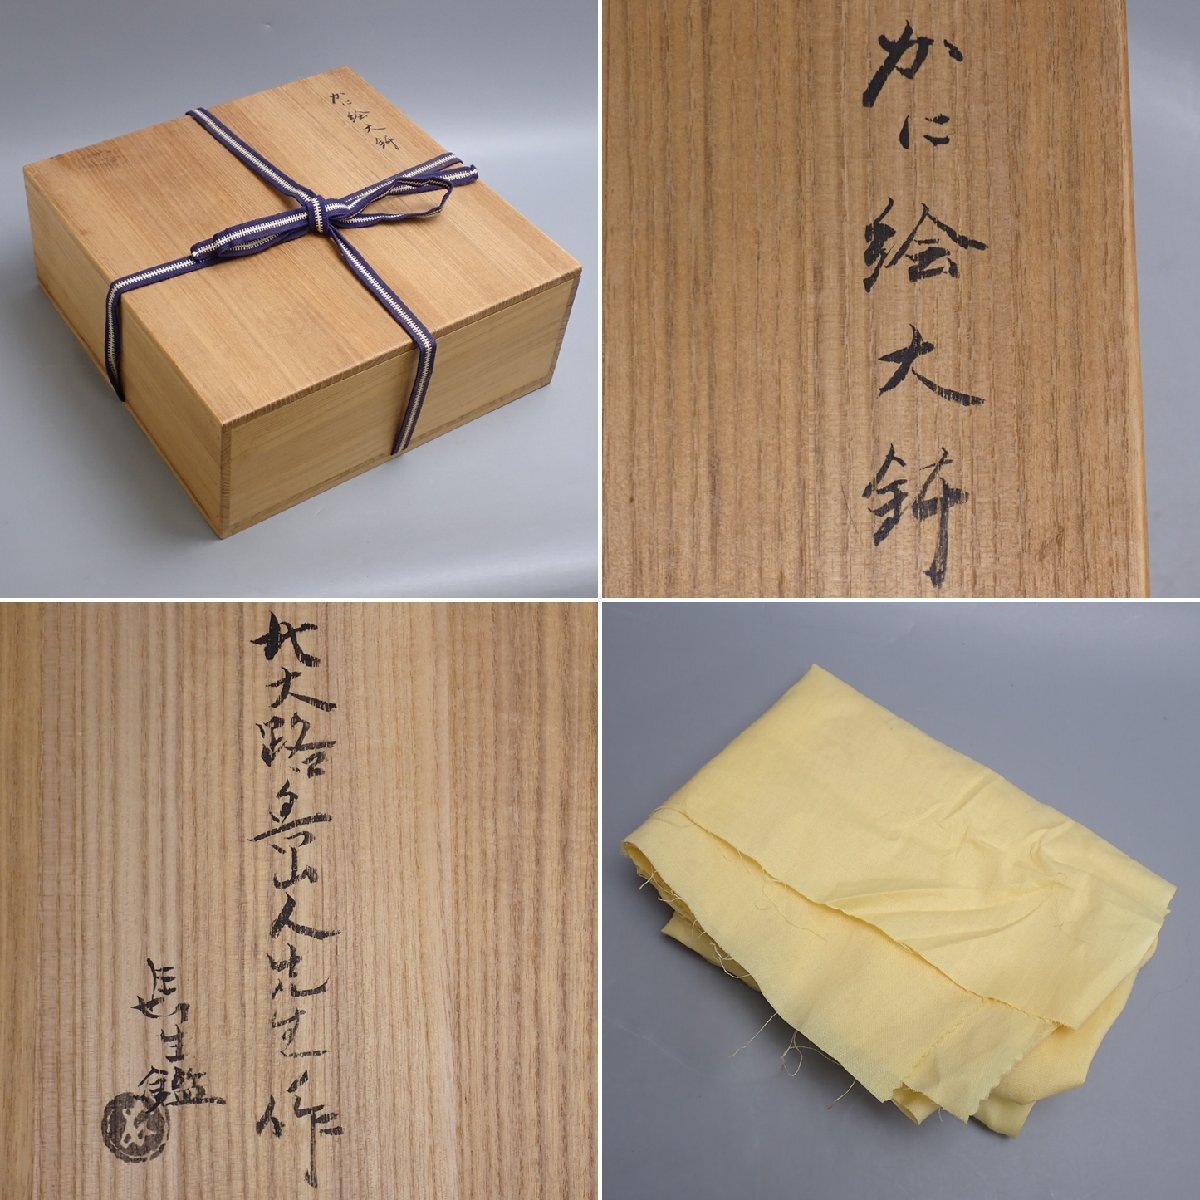 かに絵大鉢
かに絵大鉢
北大路魯山人先生作
長生鑑